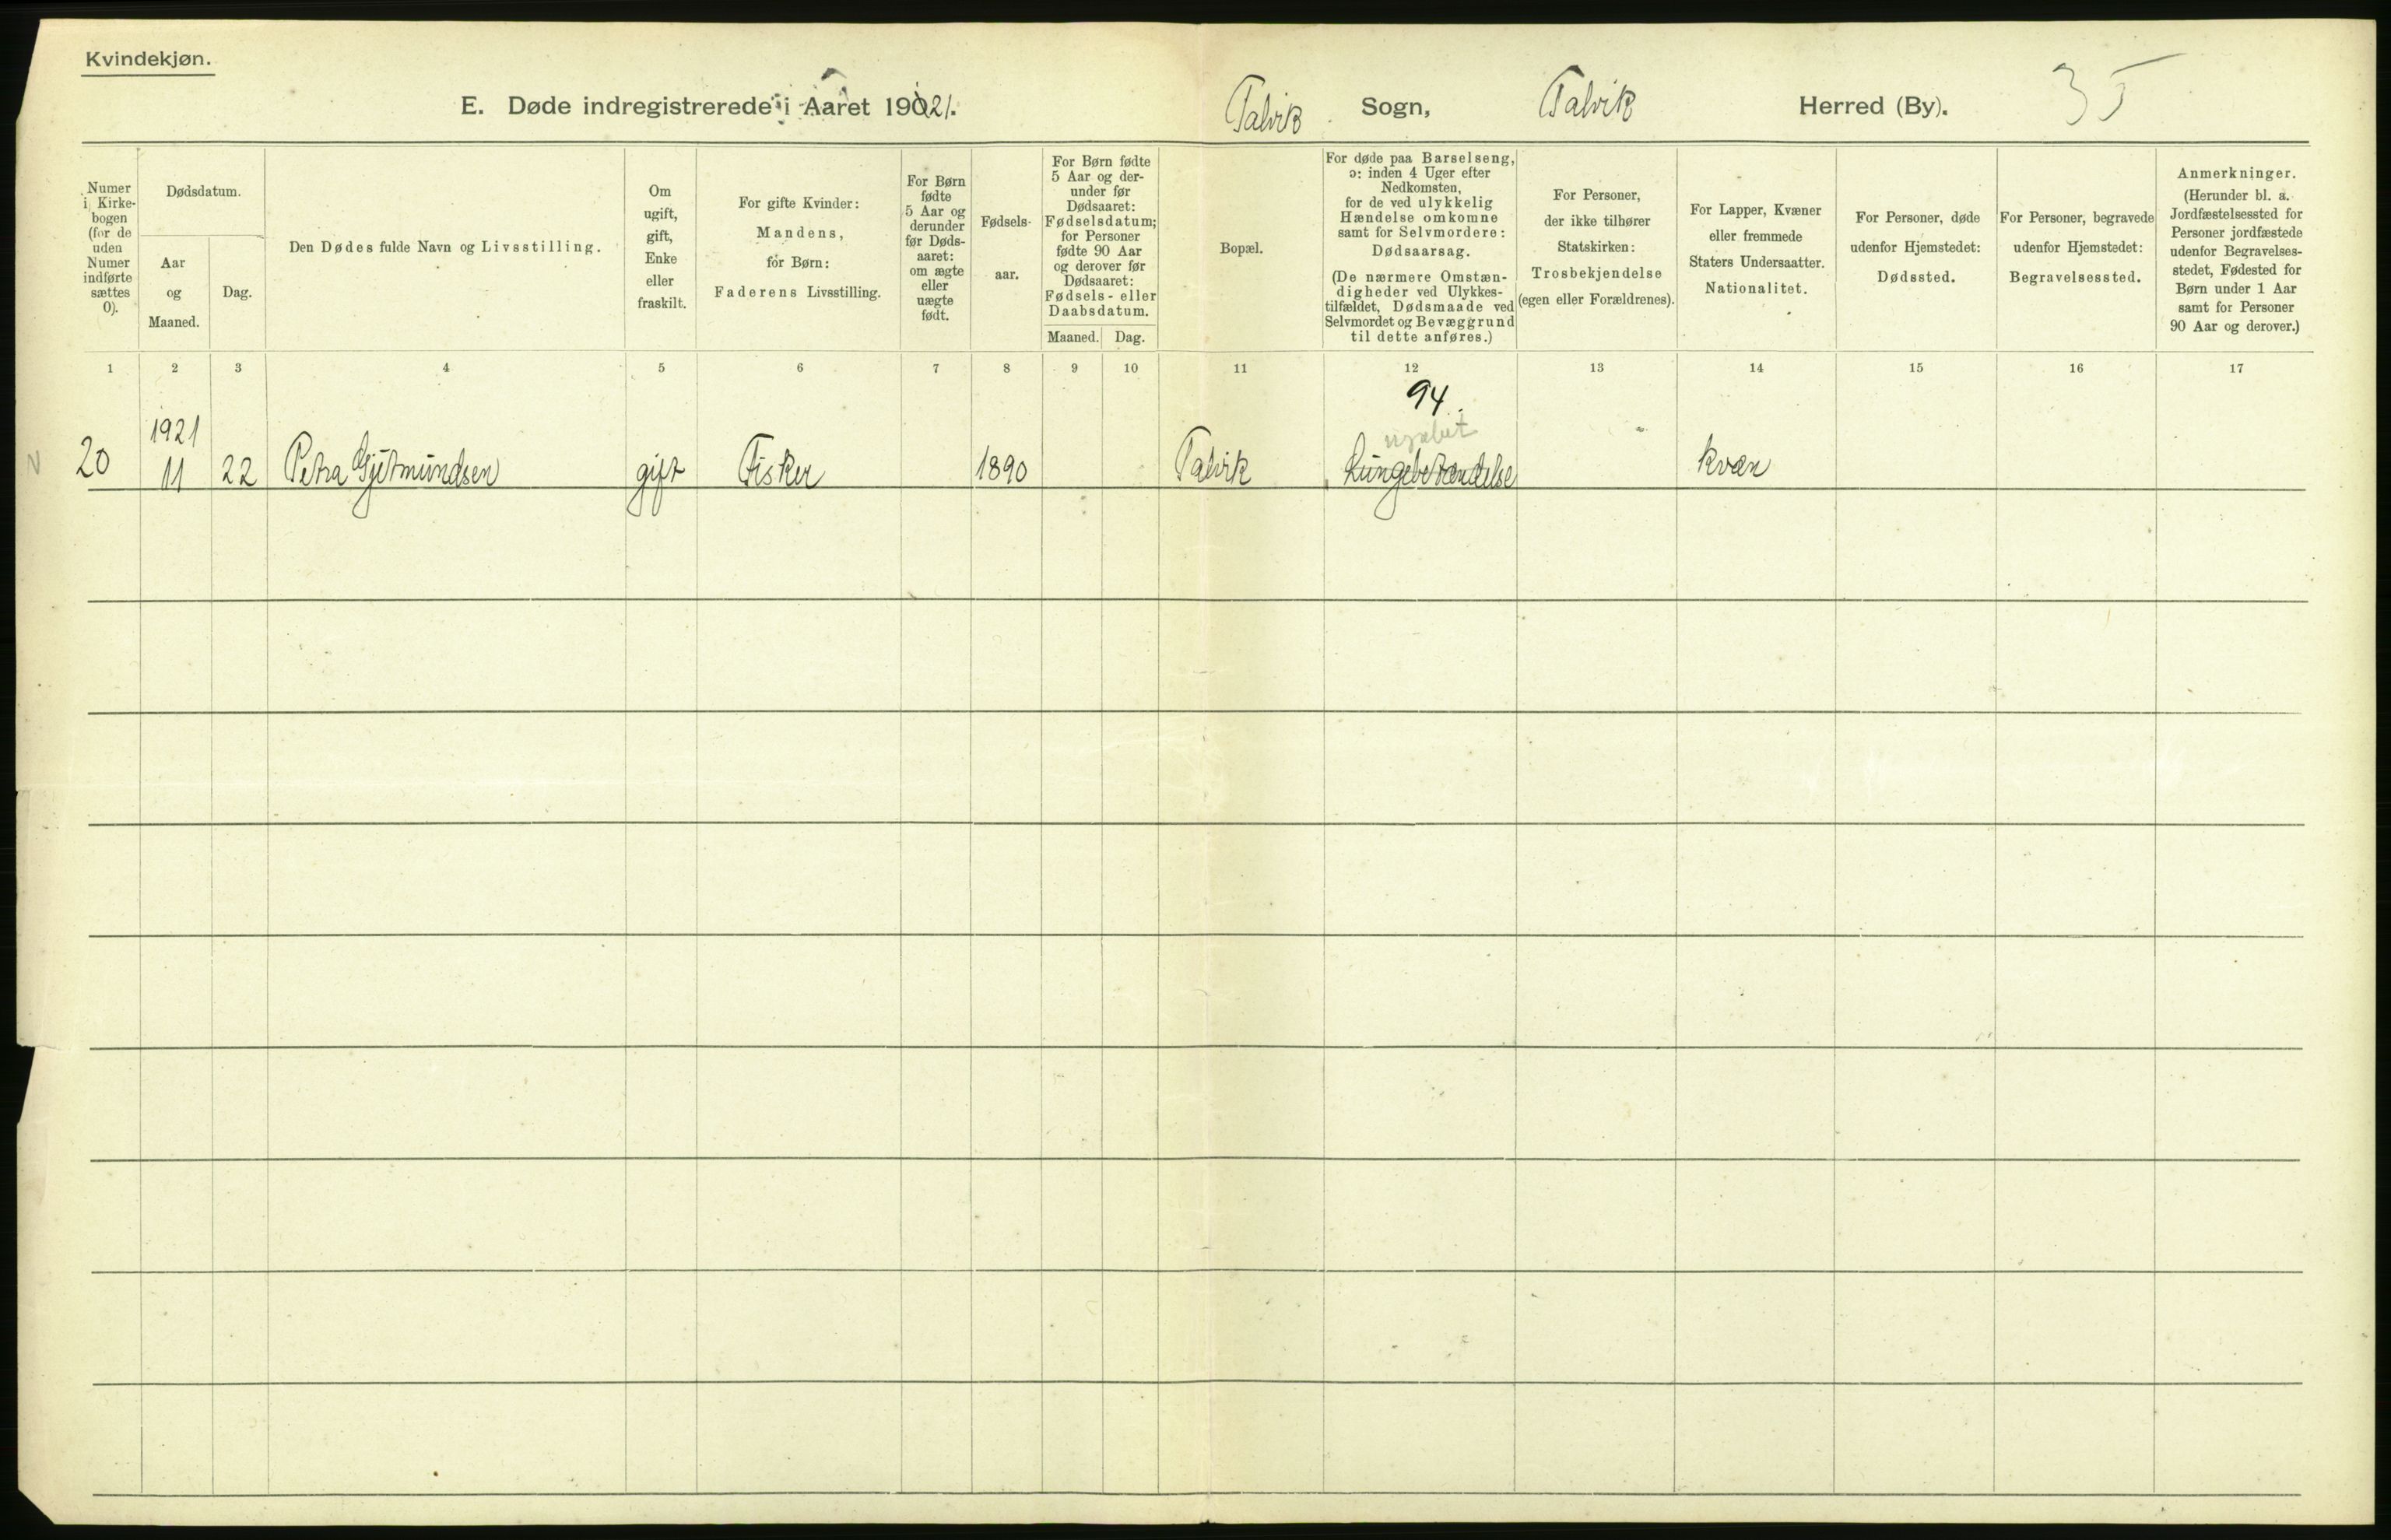 Kvindekjøn.
E. Døde indregistrerede i Aaret 1921.
Talvik Sogn, Talvik Herred (By).
Numer
i Kirke-
bogen
(for de
uden
Numer
indførte
sættes
0).
Dødsdatum.
Aar
og
Maaned.
Dag.
Den Dødes fulde Navn og Livsstilling.
Om
ugift,
gift,
Enke
eller
fraskilt.
For gifte Kvinder:
Mandens,
for Børn:
Faderens Livsstilling.
For Børn
fødte
5 Aar og
derunder
før Døds-
aaret:
om ægte
eller
uægte
født.
Fødsels-
aar.
For Børn fødte
5 Aar og der-
under før
Dødsaaret:
Fødselsdatum;
for Personer
fødte 90 Aar
og derover før
Dødsaaret:
Fødsels- eller
Daabsdatum.
Maaned. Dag.
Bopæl.
For døde paa Barselseng,
ɔ: inden 4 Uger efter
Nedkomsten,
for de ved ulykkelig
Hændelse omkomne
samt for Selvmordere:
Dødsaarsag.
(De nærmere Omstæn-
digheder ved Ulykkes-
tilfældet, Dødsmaade ved
Selvmordet og Bevæggrund
til dette anføres.)
For Personer,
der ikke tilhører
Statskirken:
Trosbekjendelse
(egen eller Forældrenes).
For Lapper, Kvæner
eller fremmede
Staters Undersaatter.
Nationalitet.
For Personer, døde
udenfor Hjemstedet:
Dødssted.
For Personer, begravede
udenfor Hjemstedet:
Begravelsessted.
Anmerkninger.
(Herunder bl. a.
Jordfæstelsessted for
Personer jordfæstede
udenfor Begravelses-
stedet, Fødested for
Børn under 1 Aar
samt for Personer
90 Aar og derover.)
1 2 3 4 5 6 7 8 9 10 11 12 13 14 15 16 17
94
1921
20 11 22 Petra Gjetmundsen gift Fisker 1890 Talvik Lungebetændelse kvæn